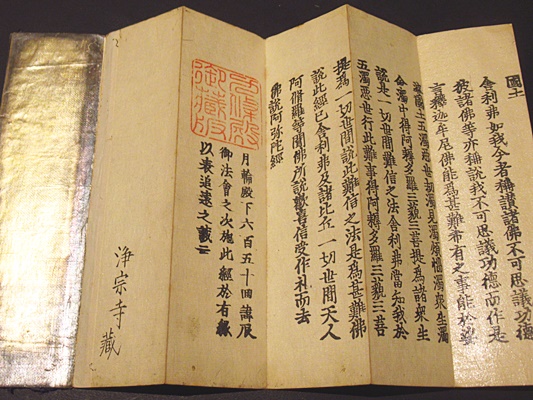 國土
舍利弗如我今者稱讚諸佛不可思議功德
彼諸佛等亦稱說我不可思議功德而作是
言釋迦牟尼佛能爲甚難希有之事能於娑
婆國土五濁惡世劫濁見濁煩惱濁衆生濁
命濁中得阿耨多羅三藐三菩提爲諸衆生
說是一切世間難信之法舍利弗當知我於
五濁惡世行此難事得阿耨多羅三藐三菩
提爲一切世間說此難信之法是爲甚難佛
說此經已舍利弗及諸比丘一切世間天人
阿脩羅等聞佛所說歡喜信受作礼而去
佛說阿弥陀經
月輪殿
御藏版
月輪殿下六百五十回諱辰
御法會之次施此經於有縁
以表追遠之誠云
淨宗寺藏